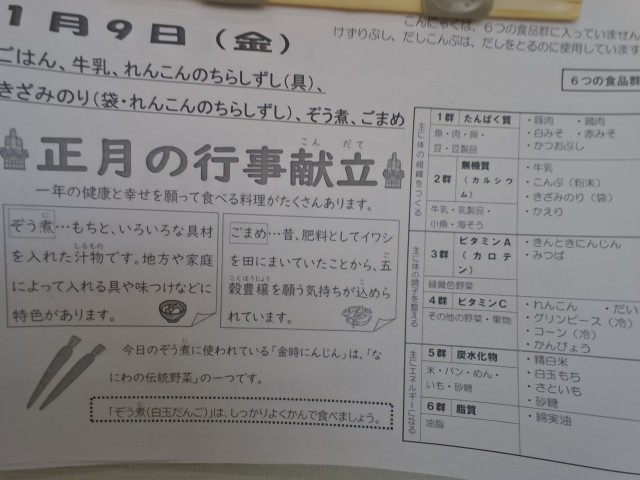 1月9日(金)
こんにゃくは、6つの食品群に入っていません
けずりぶし、だしこんぶは、だしをとるのに使用しています
ごはん、牛乳、れんこんのちらしずし(具)、
きざみのり(袋・れんこんのちらしずし)、ぞう煮、ごまめ
こん だて
正月の行事献立
一年の健康と幸せを願って食べる料理がたくさんあります。
に
ぞう煮…もちと、いろいろな具材
しるもの
を入れた汁物です。地方や家庭
によって入れる具や味つけなどに
特色があります。
ごまめ…昔、肥料としてイワシ
を田にまいていたことから、五
こくほうじょう
穀豊穣を願う気持ちが込めら
れています。
今日のぞう煮に使われている「金時にんじん」は、「な
にわの伝統野菜」の一つです。
「ぞう煮(白玉だんご)」は、しっかりよくかんで食べましょう。
6つの食品群
主に体の組織をつくる
1群 たんぱく質
魚・肉・卵・
豆・豆製品
・豚肉 ・鶏肉
・白みそ ・赤みそ
・かつおぶし
2群 無機質(カルシウム)
牛乳・乳製品・
小魚・海そう
・牛乳
・こんぶ(粉末)
・きざみのり(袋)
・かえり
主に体の調子を整える
3群 ビタミンA(カロテン)
緑黄色野菜
・きんときにんじん
・みつば
4群 ビタミンC
その他の野菜・果物
・れんこん ・だい
・グリンピース(冷)
・コーン(冷)
・かんぴょう
主にエネルギーになる
5群 炭水化物
米・パン・めん・
いも・砂糖
・精白米
・白玉もち
・さといも
・砂糖
6群 脂質
油脂
・綿実油